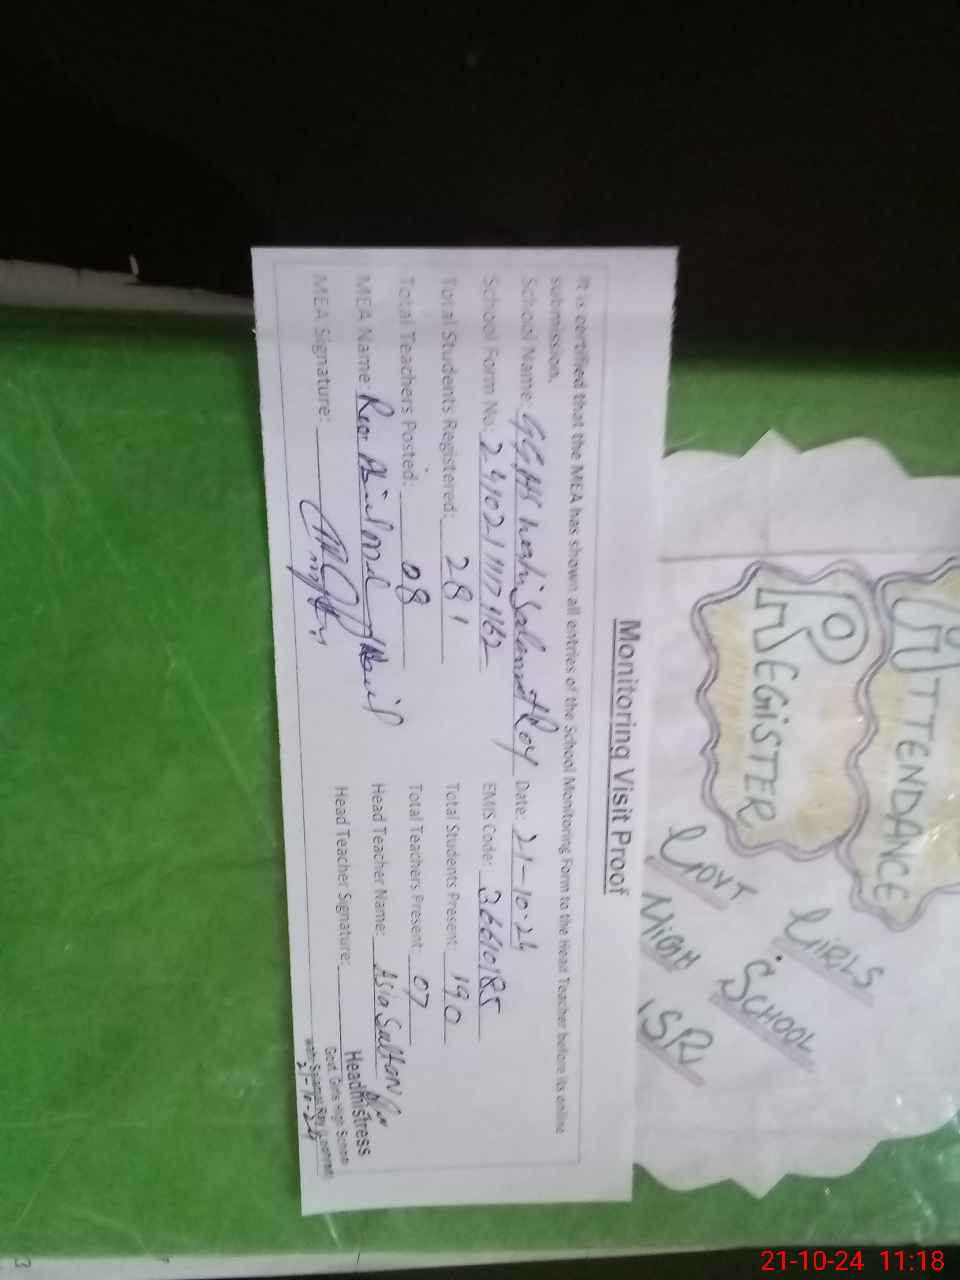 ATTENDANCE
REGISTER
GOVT GIRLS
HIGH SCHOOL
SR
Monitoring Visit Proof
It is certified that the MEA has shown all entries of the School Monitoring Form to the Head Teacher before its online
submission.
School Name: GGHS Salamat Roy Date: 21-10-24
School Form No: EMIS Code: 36610185
Total Students Registered: 281 Total Students Present: 190
Total Teachers Posted: 08 Total Teachers Present: 07
MEA Name: Head Teacher Name: Asia Sultan
MEA Signature: Head Teacher Signature:
Headmistress
Govt. Girls High School
Salamat Ray (Lodhran)
21-10-24
21-10-24 11:18